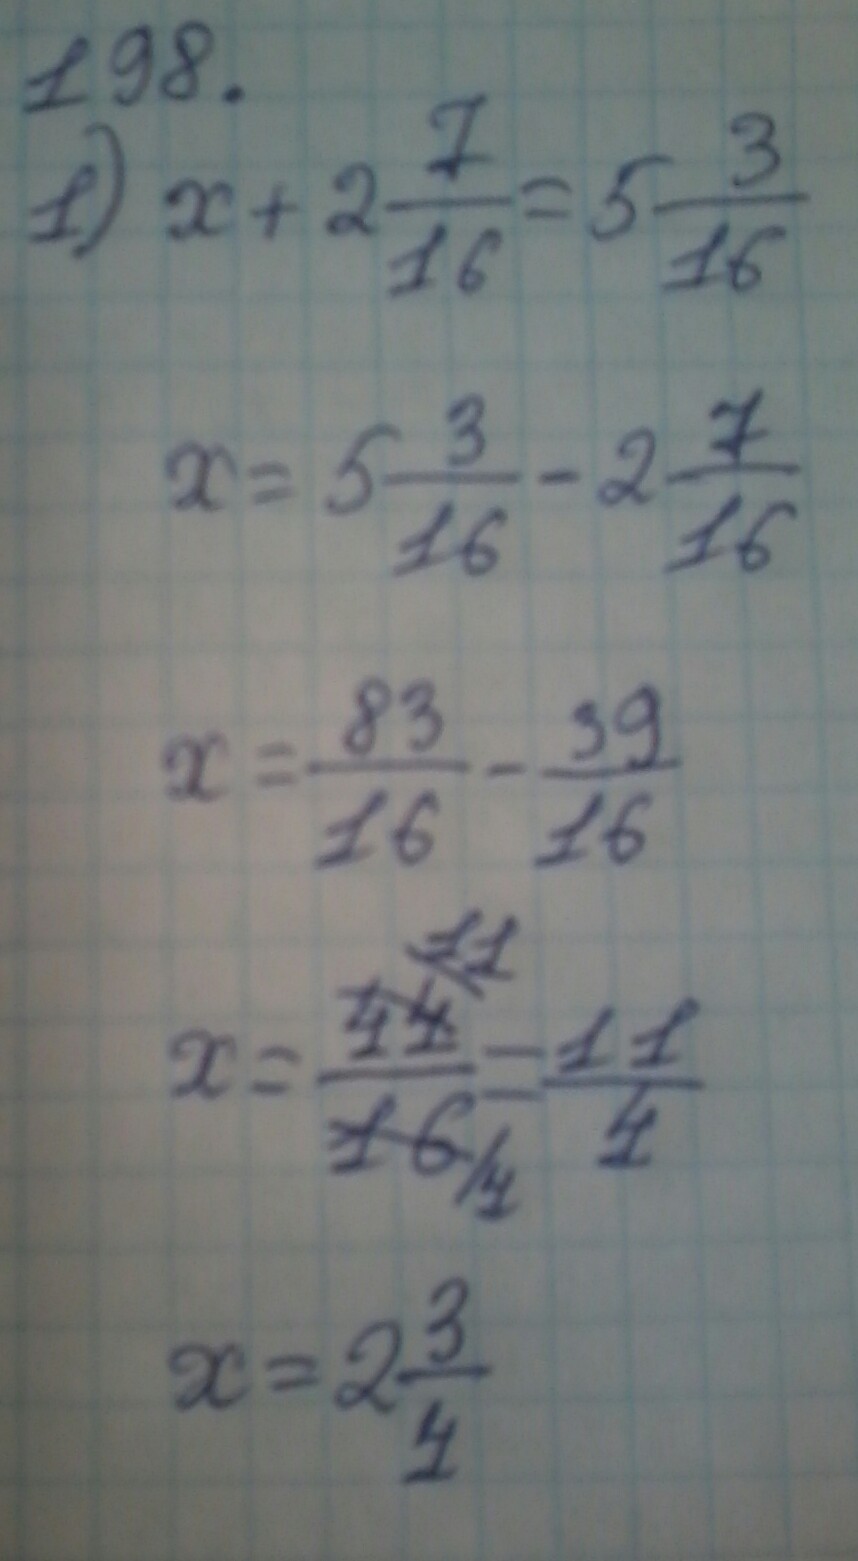 198.
1) x + 2 7/16 = 5 3/16
x = 5 3/16 - 2 7/16
x = 83/16 - 39/16
x = 44/16 (11/4) = 11/4
x = 2 3/4